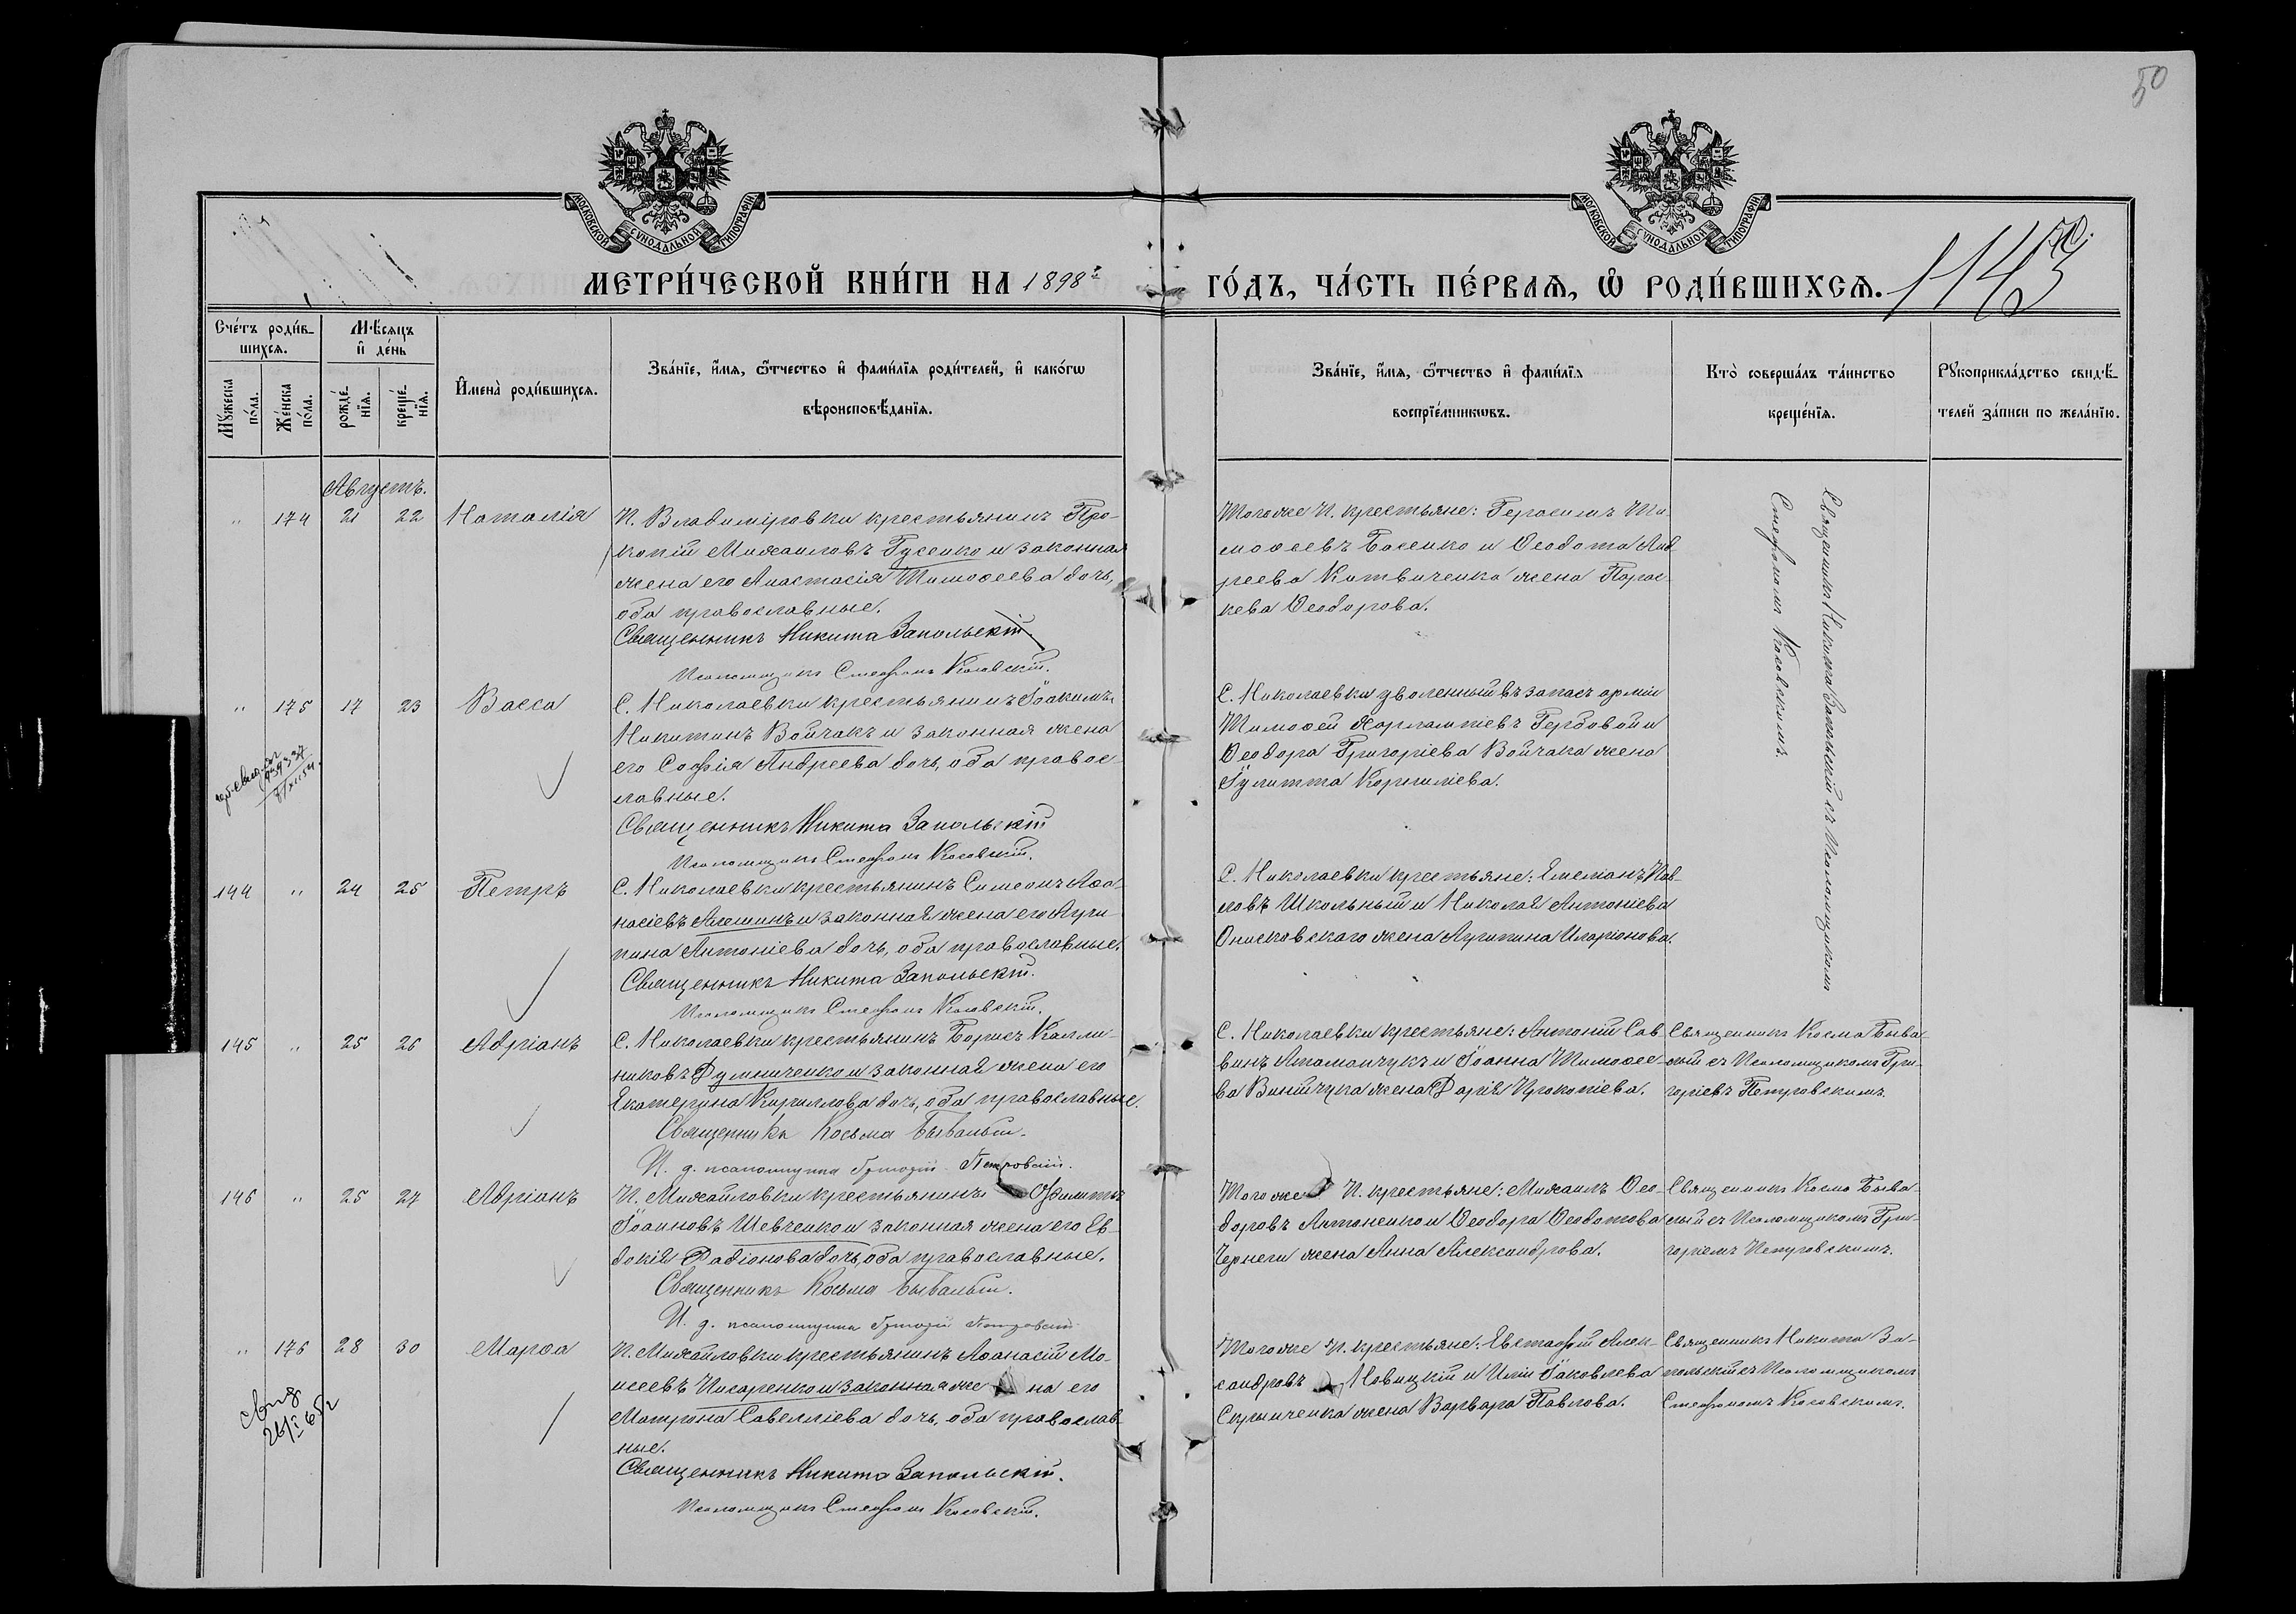 50
МОСКОВСКОЙ СѴНОДАЛЬНОЙ ТИПОГРАФІИ
МОСКОВСКОЙ СѴНОДАЛЬНОЙ ТИПОГРАФІИ
МЕТРИ́ЧЕСКОЙ КНИ́ГИ НА 1898й
ГО́ДЪ, ЧА́СТЬ ПЕ́РВАѦ, Ѡ҆ РОДИ́ВШИХСѦ.
1143
Сче́тъ роди́в-
шихсѧ.
Мꙋ́жеска по́ла.
Же́нска по́ла.
Мѣ́сѧцъ
и҆ де́нь
рожде́-
нїѧ.
креще́-
нїѧ.
И҆мена̀ роди́вшихсѧ.
Зва́нїе, и҆́мѧ, ѻ҆́тчество и҆ фами́лїѧ роди́телей, и҆ како́гѡ
вѣроисповѣ́данїѧ.
Зва́нїе, и҆́мѧ, ѻ҆́тчество и҆ фами́лїѧ
воспрїе́мникѡвъ.
Кто̀ соверша́лъ та́инство
креще́нїѧ.
Рꙋкоприкла́дство свидѣ́-
телей за́писи по жела́нїю.
Августъ.
" 174 21 22 Наталія
П. Владиміровки крестьянинъ Про-
копій Михаиловъ Гусенко и законная
жена его Анастасія Тимоѳеева дочь,
оба православные.
Священникъ Никита Запольскій.
Псаломщикъ Стефанъ Косовскій.
Тогоже П. крестьяне: Герасимъ Ти-
моѳеевъ Басенко и Ѳеодота Анд-
реева Житвиченка жена Парас-
кева Ѳеодорова.
Священникъ Никита Запольскій съ Псаломщикомъ
Стефаномъ Косовскимъ.
" 175 17 23 Васса
С. Николаевки крестьянинъ Іоакимъ
Никитинъ Войчакъ и законная жена
его Софія Андреева дочь, оба правос-
лавные.
Священникъ Никита Запольскій
Псаломщикъ Стефанъ Косовскій.
С. Николаевки уволенный въ запасъ арміи
Тимоѳей Харлампіевъ Гербовой и
Ѳеодора Григоріева Войчака жена
Іулитта Корниліева.
144 " 24 25 Петръ
С. Николаевки крестьянинъ Симеонъ Аѳа-
насіевъ Алешинъ и законная жена его Агри-
пина Антоніева дочь, оба православные.
Священникъ Никита Запольскій.
Псаломщикъ Стефанъ Косовскій.
С. Николаевки крестьяне: Емеліанъ Пав-
ловъ Школьный и Николая Антоніева
Онисковскаго жена Агрипина Иларіонова.
145 " 25 26 Адріанъ
С. Николаевки крестьянинъ Борисъ Калли-
никовъ Думниченко и законная жена его
Екатерина Кириллова дочь, оба православные.
Священникъ Косьма Бывалый.
И. д. псаломщика Григорій Петровскій.
С. Николаевки крестьяне: Антоній Сав-
винъ Атаманчукъ и Іоанна Тимоѳее-
ва Винничука жена Дарія Прокопіева.
Священникъ Косма Быва-
лый съ Псаломщикомъ Гри-
горіевъ Петровскимъ.
146 " 25 27 Адріанъ
П. Михайловки крестьянинъ Филиппъ
Іоанновъ Шевченко и законная жена его Ев-
докія Радіонова дочь, оба православные.
Священникъ Косьма Бывалый.
И. д. псаломщика Григорій Петровскій.
Тогоже П. крестьяне: Михаилъ Ѳео-
доровъ Антоненко и Ѳеодора Ѳеодотова
Чернеги жена Анна Александрова.
Священникъ Косма Быва-
лый съ Псаломщикомъ Гри-
горіемъ Петровскимъ.
" 176 28 30 Марѳа
П. Михайловки крестьянинъ Аѳанасій Мо-
исеевъ Писаренко и законная же на его
Матрона Савелліева дочь, оба православ-
ные.
Священникъ Никита Запольскій.
Псаломщикъ Стефанъ Косовскій.
Тогоже П. крестьяне: Евстафій Алек-
сандровъ Новицкій и Иліи Іаковлева
жена Варвара Павлова.
Священникъ Никита За-
польскій съ Псаломщикомъ
Стефаномъ Косовскимъ.